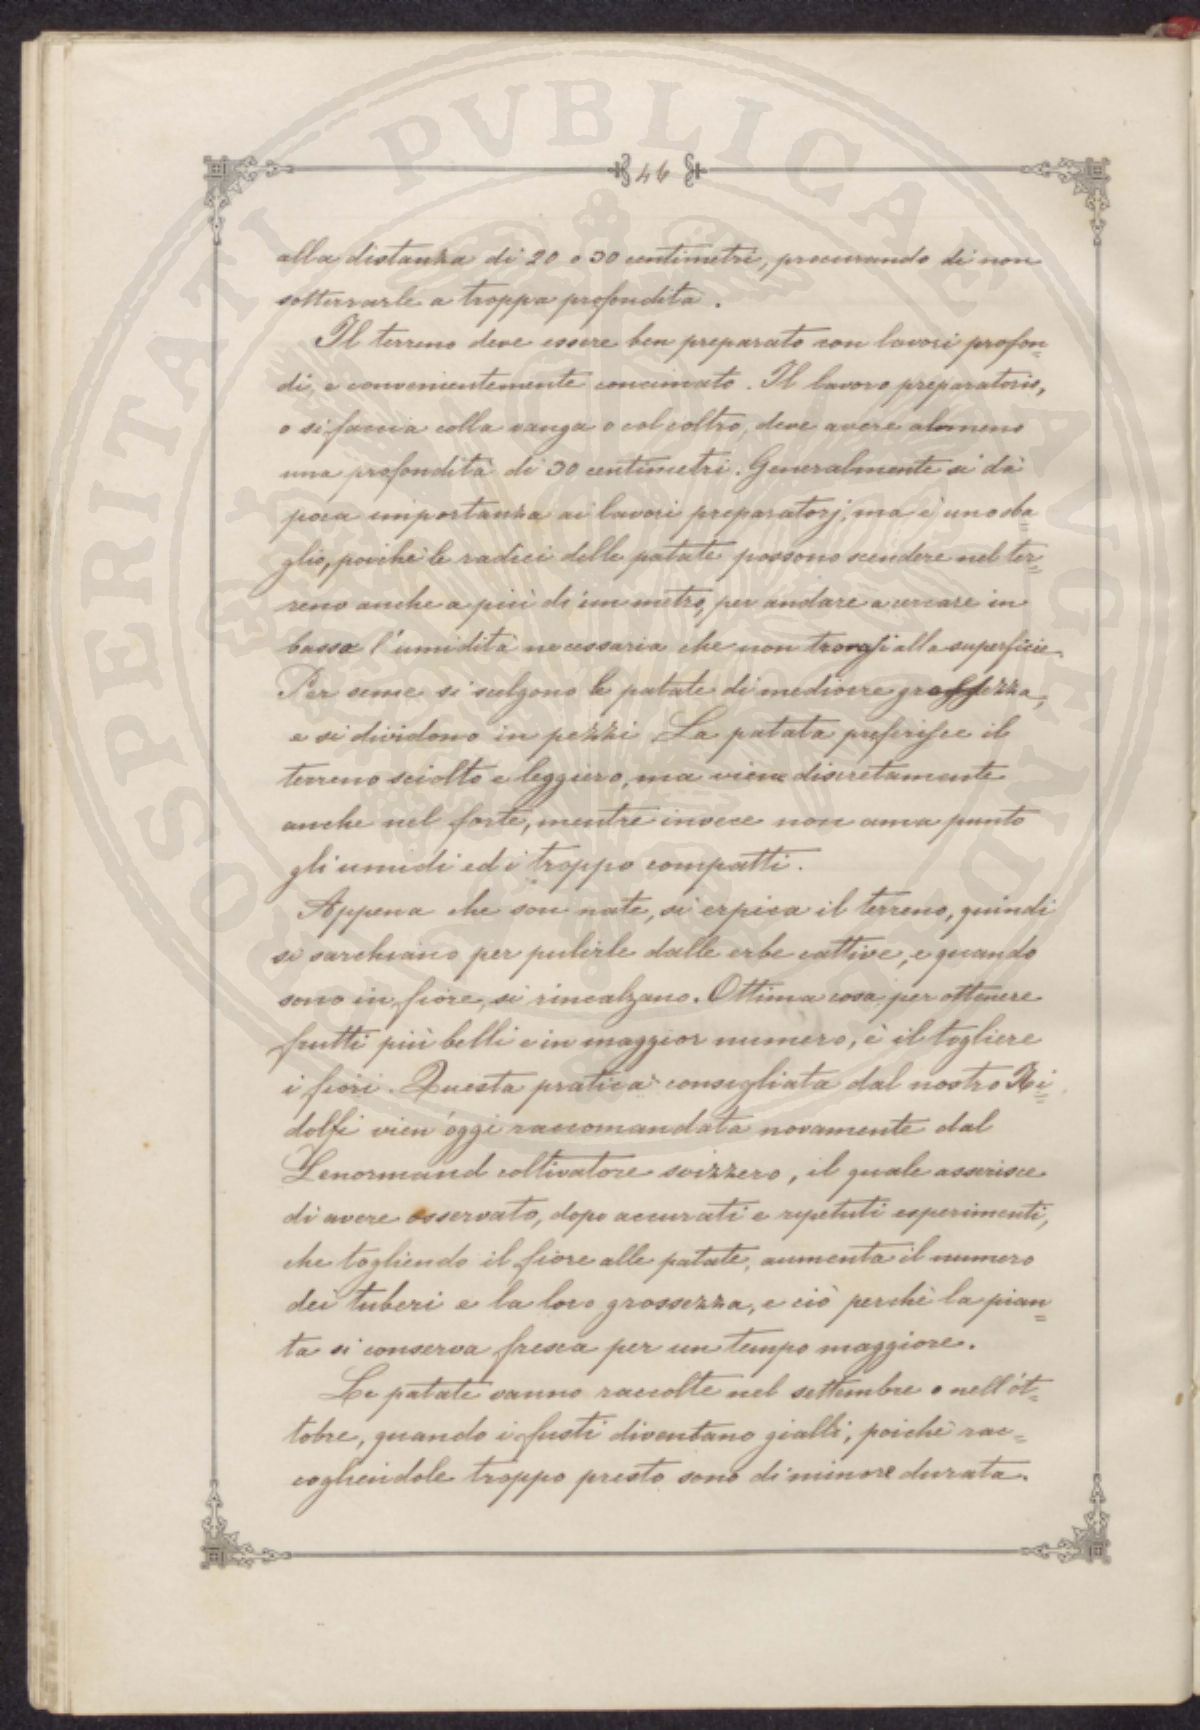 PROSPERITATI PVBLICAE AVGENDAE
46
alla distanza di 20 o 30 centimetri, procurando di non
sotterrarle a troppa profondità.
Il terreno deve essere ben preparato con lavori profon=
di, e convenientemente concimato. Il lavoro preparatorio,
o si faccia colla vanga o col coltro, deve avere almeno
una profondità di 30 centimetri. Generalmente si dà
poca importanza ai lavori preparatorj, ma è uno sba=
glio, poichè le radici delle patate possono scendere nel ter=
reno anche a più di un metro, per andare a cercare in
basso l'umidità necessaria che non trovasi alla superficie.
Per seme si scelgono le patate di mediocre grossezza,
e si dividono in pezzi La patata preferisce il
terreno sciolto e leggiero, ma viene discretamente
anche nel forte, mentre invece non ama punto
gli umidi ed i troppo compatti.
Appena che son nate, si erpica il terreno, quindi
si sarchiano per pulirle dalle erbe cattive, e quando
sono in fiore, si rincalzano. Ottima cosa per ottenere
frutti più belli e in maggior numero, è il togliere
i fiori. Questa pratica consigliata dal nostro Ri=
dolfi vien' oggi raccomandata novamente dal
Lenormand coltivatore svizzero, il quale asserisce
di avere osservato, dopo accurati e repetuti esperimenti,
che togliendo il fiore alle patate, aumenta il numero
dei tuberi e la loro grossezza, e ciò perchè la pian=
ta si conserva fresca per un tempo maggiore.
Le patate vanno raccolte nel settembre o nell'ot=
tobre, quando i fusti diventano gialli, poichè rac=
cogliendole troppo presto sono di minore durata.